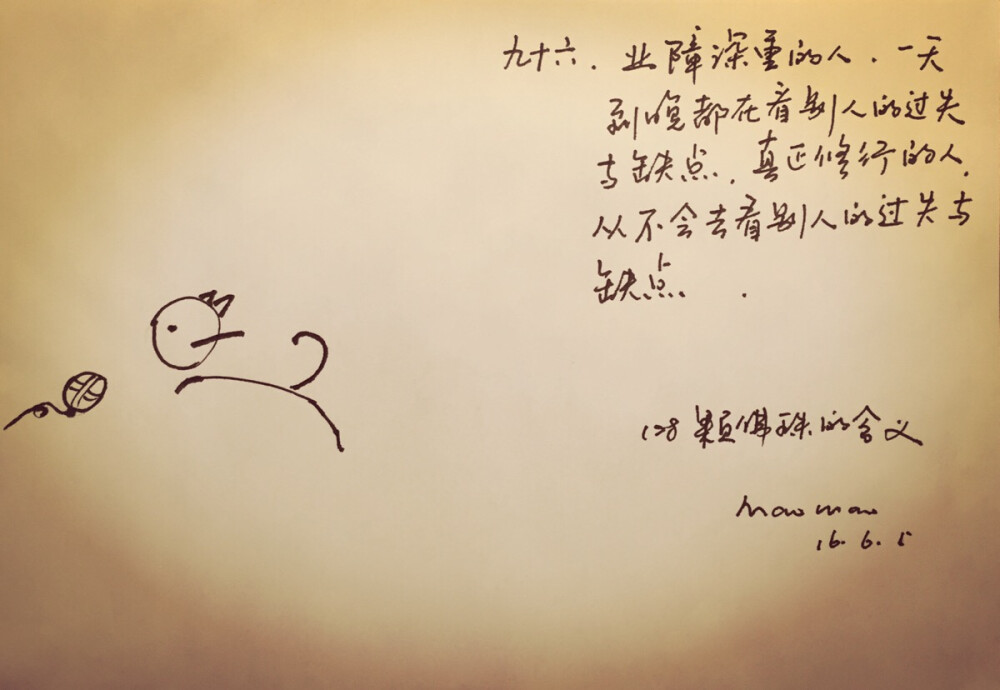 九十六、业障深重的人,一天
到晚都在看别人的过失
与缺点,真正修行的人,
从不会去看别人的过失与
缺点。
128颗佛珠的含义
maomao
16.6.5